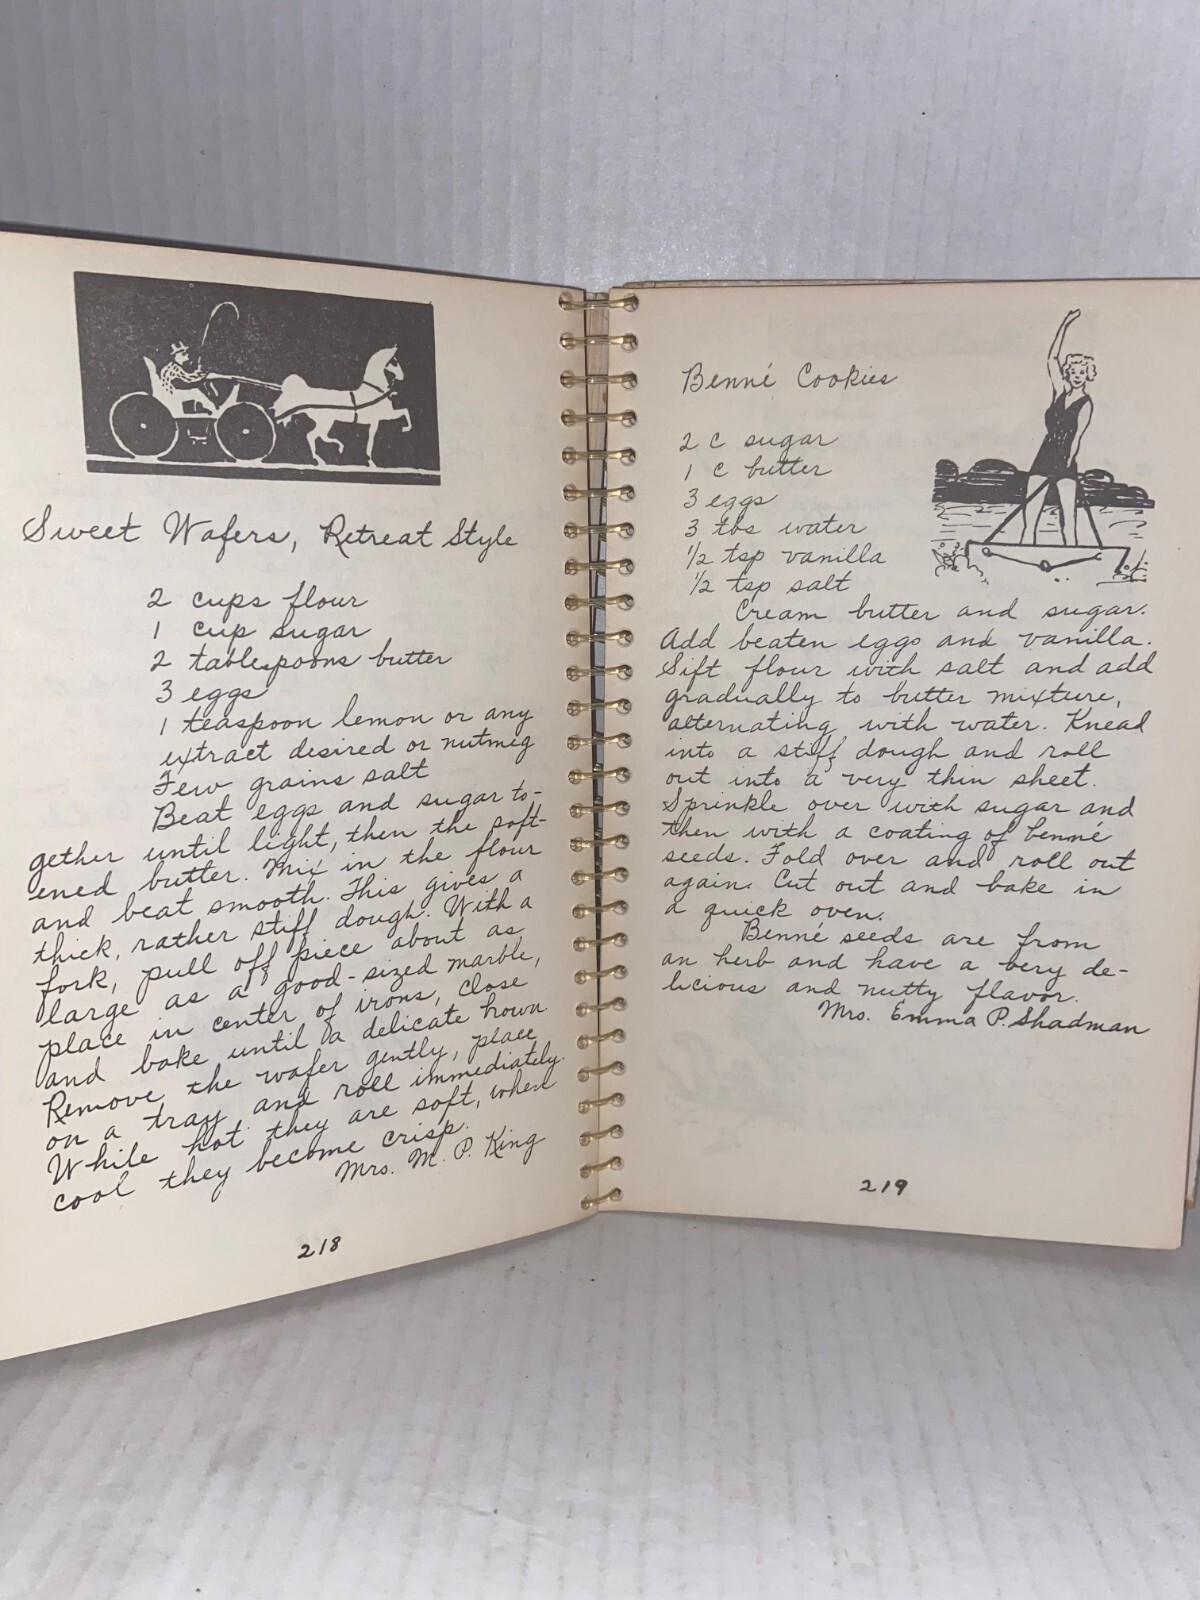 Sweet Wafers, Retreat Style
2 cups flour
1 cup sugar
2 tablespoons butter
3 eggs
1 teaspoon lemon or any
extract desired or nutmeg
Few grains salt
Beat eggs and sugar to-
gether until light, then the soft-
ened butter. Mix in the flour
and beat smooth. This gives a
thick, rather stiff dough. With a
fork, pull off piece about as
large as a good-sized marble,
place in center of irons, close
and bake until a delicate brown
Remove the wafer gently, place
on a tray and roll immediately.
While hot they are soft, when
cool they become crisp.
Mrs. M. P. King
218
Benné Cookies
2 c sugar
1 c butter
3 eggs
3 tbs water
1/2 tsp vanilla
1/2 tsp salt
Cream butter and sugar.
Add beaten eggs and vanilla.
Sift flour with salt and add
gradually to butter mixture,
alternating with water. Knead
into a stiff dough and roll
out into a very thin sheet.
Sprinkle over with sugar and
then with a coating of benné
seeds. Fold over and roll out
again. Cut out and bake in
a quick oven.
Benné seeds are from
an herb and have a very de-
licious and nutty flavor.
Mrs. Emma P. Shadman
219